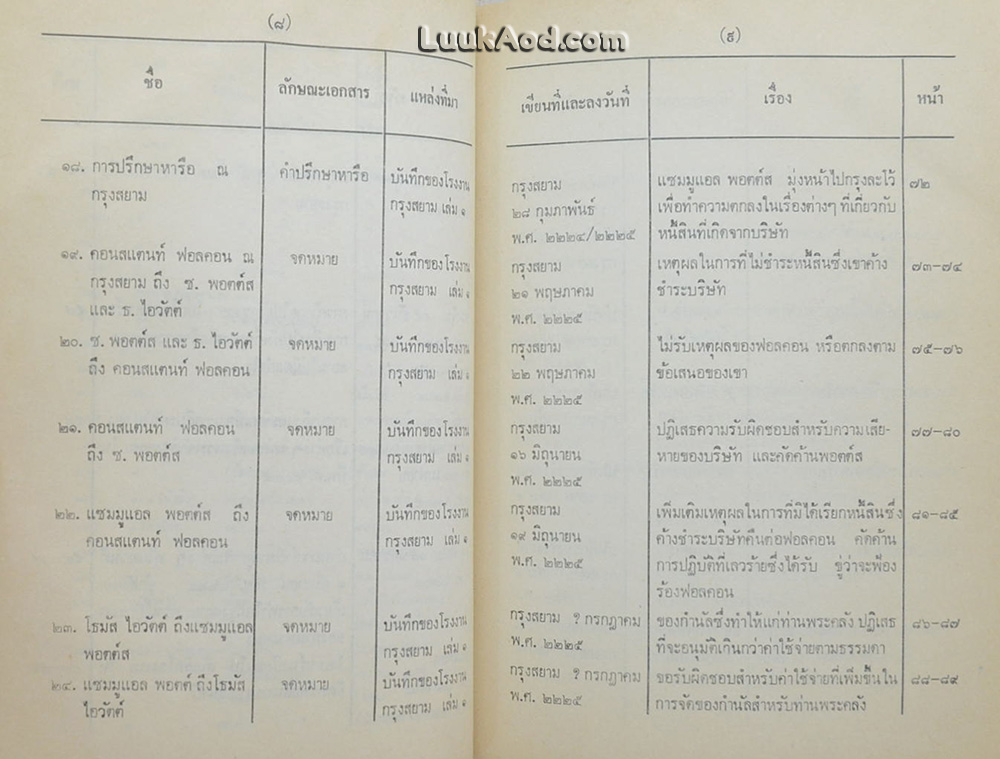 LuukAod.com
(๘)
ชื่อ
ลักษณะเอกสาร
แหล่งที่มา
๑๘. การปรึกษาหารือ ณ
กรุงสยาม
คำปรึกษาหารือ
บันทึกของโรงงาน
กรุงสยาม เล่ม ๑
๑๙. คอนสแตนท์ ฟอลคอน ณ
กรุงสยาม ถึง ซ. พอตต์ส
และ ธ. ไอวัตต์
จดหมาย
บันทึกของโรงงาน
กรุงสยาม เล่ม ๑
๒๐. ซ. พอตต์ส และ ธ. ไอวัตต์
ถึง คอนสแตนท์ ฟอลคอน
จดหมาย
บันทึกของโรงงาน
กรุงสยาม เล่ม ๑
๒๑. คอนสแตนท์ ฟอลคอน
ถึง ซ. พอตต์ส
จดหมาย
บันทึกของโรงงาน
กรุงสยาม เล่ม ๑
๒๒. แซมมูแอล พอตต์ส ถึง
คอนสแตนท์ ฟอลคอน
จดหมาย
บันทึกของโรงงาน
กรุงสยาม เล่ม ๑
๒๓. โธมัส ไอวัตต์ ถึงแซมมูแอล
พอตต์ส
จดหมาย
บันทึกของโรงงาน
กรุงสยาม เล่ม ๑
๒๔. แซมมูแอล พอตต์ ถึงโธมัส
ไอวัตต์
จดหมาย
บันทึกของโรงงาน
กรุงสยาม เล่ม ๑
(๙)
เขียนที่และลงวันที่
เรื่อง
หน้า
กรุงสยาม
๒๘ กุมภาพันธ์
พ.ศ. ๒๒๒๔/๒๒๒๕
แซมมูแอล พอตต์ส มุ่งหน้าไปกรุงละโว้
เพื่อทำความตกลงในเรื่องต่างๆ ที่เกี่ยวกับ
หนี้สินที่เกิดจากบริษัท
๗๒
กรุงสยาม
๒๑ พฤษภาคม
พ.ศ. ๒๒๒๕
เหตุผลในการที่ไม่ชำระหนี้สินซึ่งเขาค้าง
ชำระบริษัท
๗๓-๗๔
กรุงสยาม
๒๒ พฤษภาคม
พ.ศ. ๒๒๒๕
ไม่รับเหตุผลของฟอลคอน หรือตกลงตาม
ข้อเสนอของเขา
๗๕-๗๖
กรุงสยาม
๑๖ มิถุนายน
พ.ศ. ๒๒๒๕
ปฏิเสธความรับผิดชอบสำหรับความเสีย-
หายของบริษัท และคัดค้านพอตต์ส
๗๗-๘๐
กรุงสยาม
๑๙ มิถุนายน
พ.ศ. ๒๒๒๕
เพิ่มเติมเหตุผลในการที่มิได้เรียกหนี้สินซึ่ง
ค้างชำระบริษัทคืนต่อฟอลคอน คัดค้าน
การปฏิบัติที่เลวร้ายซึ่งได้รับ ขู่ว่าจะฟ้อง
ร้องฟอลคอน
๘๑-๘๕
กรุงสยาม ? กรกฎาคม
พ.ศ. ๒๒๒๕
ของกำนัลซึ่งทำให้แก่ท่านพระคลัง ปฏิเสธ
ที่จะอนุมัติเกินกว่าค่าใช้จ่ายตามธรรมดา
๘๖-๘๗
กรุงสยาม ? กรกฎาคม
พ.ศ. ๒๒๒๕
ขอรับผิดชอบสำหรับค่าใช้จ่ายที่เพิ่มขึ้นใน
การจัดของกำนัลสำหรับท่านพระคลัง
๘๘-๘๙